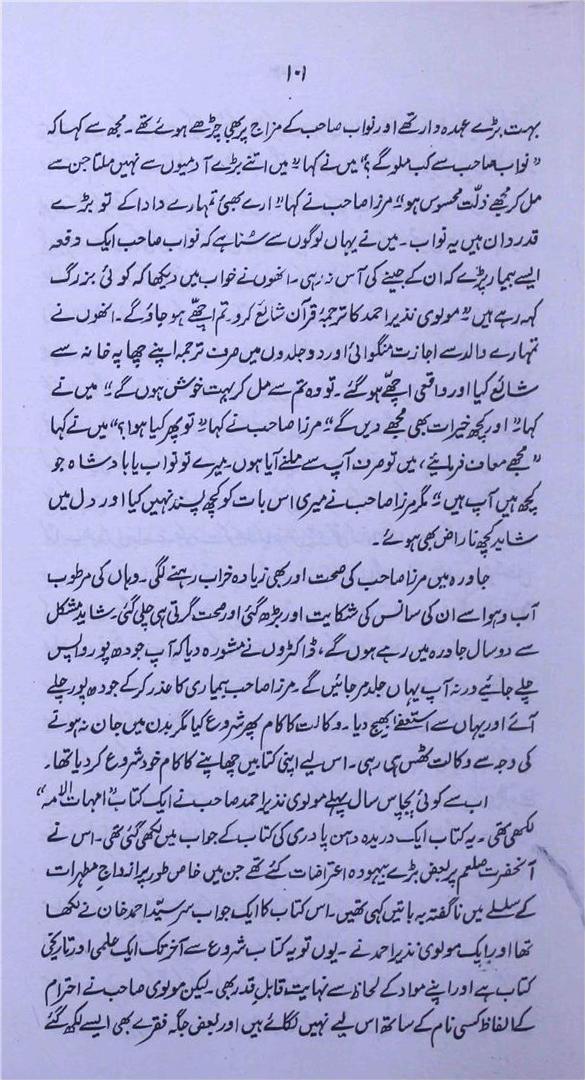 ۱۰۱
بہت بڑے عہدہ دار تھے اور نواب صاحب کے مزاج پر بھی چڑھے ہوئے تھے۔ مجھ سے کہا کہ
"نواب صاحب سے کب ملو گے؟" میں نے کہا "میں اتنے بڑے آدمیوں سے نہیں ملتا جن سے
مل کر مجھے ذلّت محسوس ہو"۔ مرزا صاحب نے کہا "ارے بھئی تمہارے دادا کے تو بڑے
قدردان ہیں یہ نواب۔ میں نے یہاں لوگوں سے سُنا ہے کہ نواب صاحب ایک دفعہ
ایسے بیمار پڑے کہ ان کے جینے کی آس نہ رہی۔ انھوں نے خواب میں دیکھا کہ کوئی بزرگ
کہہ رہے ہیں "مولوی نذیر احمد کا ترجمۂ قرآن شائع کرو تم اچھّے ہو جاؤ گے۔ انھوں نے
تمہارے والد سے اجازت منگوائی اور دو جلدوں میں صرف ترجمہ اپنے چھاپہ خانہ سے
شائع کیا اور واقعی اچھّے ہو گئے۔ تو وہ تم سے مل کر بہت خوش ہوں گے"۔ میں نے
کہا "اور کچھ خیرات بھی مجھے دیں گے"۔ مرزا صاحب نے کہا "تو پھر کیا ہوا؟" میں نے کہا
"مجھے معاف فرمائیے، میں تو صرف آپ سے ملنے آیا ہوں۔ میرے تو نواب یا بادشاہ جو
کچھ ہیں آپ ہیں"۔ مگر مرزا صاحب نے میری اس بات کو کچھ پسند نہیں کیا اور دل میں
شاید کچھ ناراض بھی ہوئے۔
جاورہ میں مرزا صاحب کی صحت اور بھی زیادہ خراب رہنے لگی۔ وہاں کی مرطوب
آب و ہوا سے ان کی سانس کی شکایت اور بڑھ گئی اور صحت گرتی ہی چلی گئی۔ شاید مشکل
سے دو سال جاورہ میں رہے ہوں گے، ڈاکٹروں نے مشورہ دیا کہ آپ جودھ پور واپس
چلے جائیے ورنہ آپ یہاں جلد مر جائیں گے۔ مرزا صاحب بیماری کا عذر کر کے جودھ پور چلے
آئے اور یہاں سے استعفٰے بھیج دیا۔ وکالت کا کام پھر شروع کیا مگر بدن میں جان نہ ہونے
کی وجہ سے وکالت ٹھس ہی رہی۔ اس لیے اپنی کتابیں چھاپنے کا کام خود شروع کر دیا تھا۔
اب سے کوئی پچاس سال پہلے مولوی نذیر احمد صاحب نے ایک کتاب "امہات الامہ"
لکھی تھی۔ یہ کتاب ایک دریدہ دہن پادری کی کتاب کے جواب میں لکھی گئی تھی۔ اس نے
آنحضرت صلعم پر بعض بڑے بیہودہ اعتراضات کئے تھے جن میں خاص طور پر ازواجِ مطہرات
کے سلسلے میں ناگفتہ بہ باتیں کہی تھیں۔ اس کتاب کا ایک جواب سر سیّد احمد خان نے لکھا
تھا اور ایک مولوی نذیر احمد نے۔ یوں تو یہ کتاب شروع سے آخر تک ایک علمی اور تاریخی
کتاب ہے اور اپنے مواد کے لحاظ سے نہایت قابلِ قدر بھی۔ لیکن مولوی صاحب نے احترام
کے الفاظ کسی نام کے ساتھ اس لیے نہیں لگائے ہیں اور بعض جگہ فقرے بھی ایسے لکھ گئے